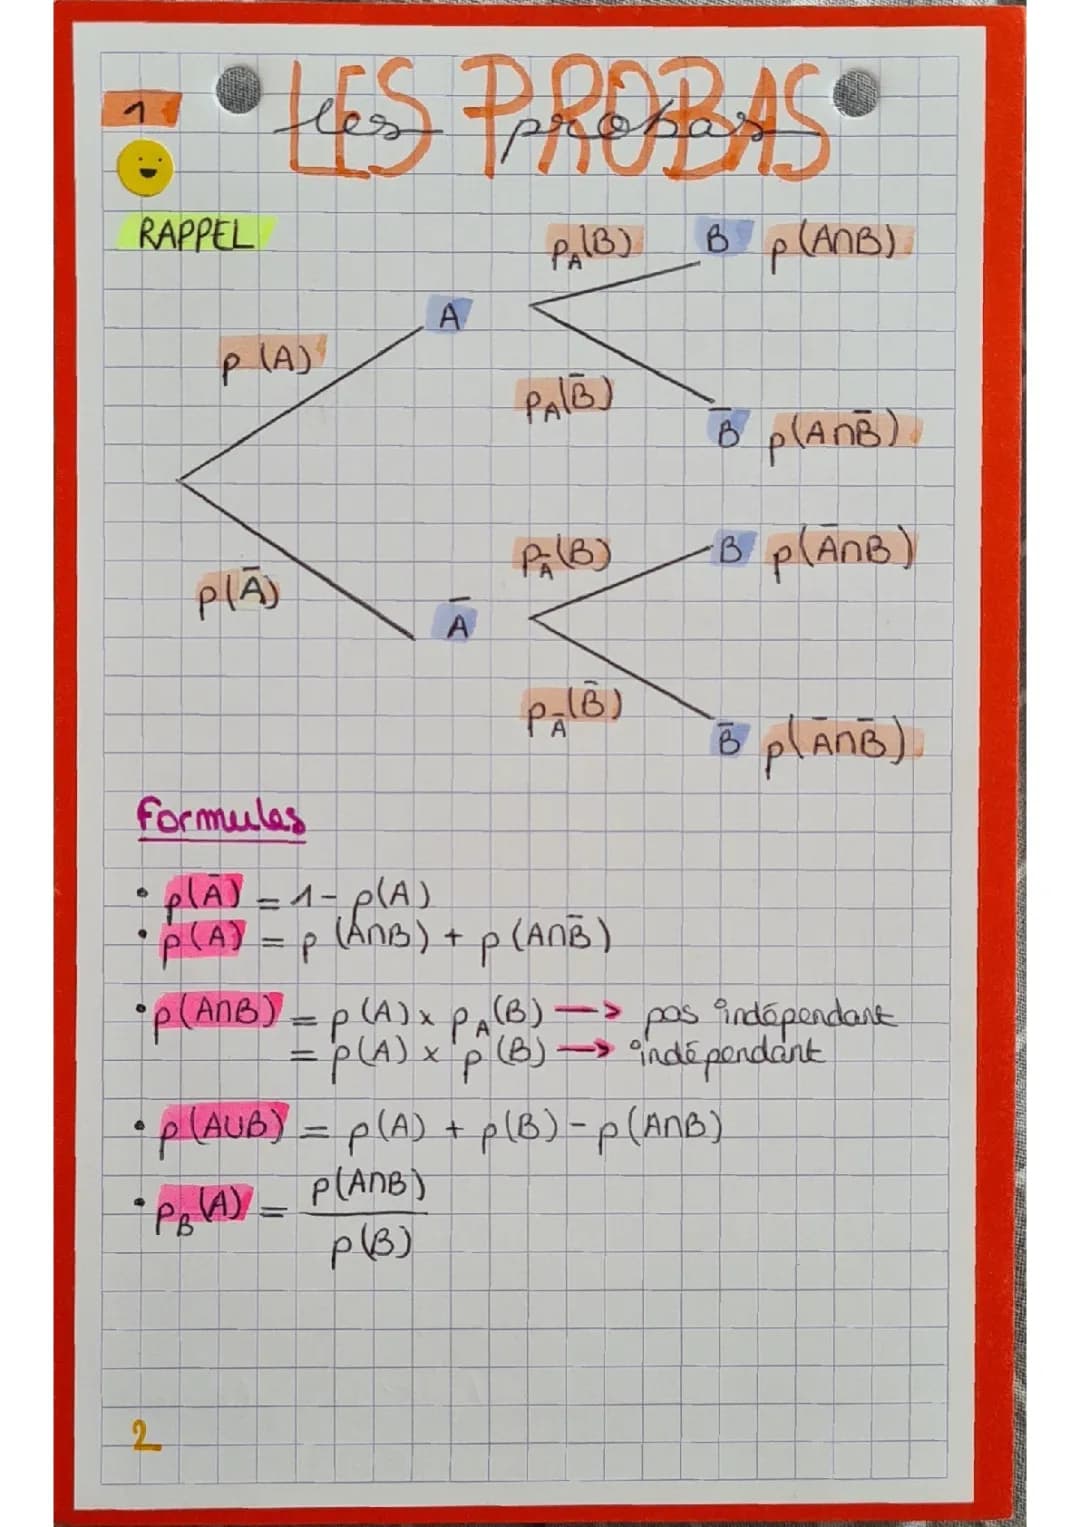 1
LES PROBAS
les probas
RAPPEL
p_A(B) B p(A∩B)
A
p(A)
p_A(B̄)
B̄ p(A∩B̄)
p_Ā(B) B p(Ā∩B)
p(Ā)
Ā
p_Ā(B̄)
B̄ p(Ā∩B̄)
Formules
• p(Ā) = 1 - p(A)
• p(A) = p(A∩B) + p(A∩B̄)
• p(A∩B) = p(A) x p_A(B) → pas indépendant
= p(A) x p(B) → indépendant
• p(A∪B) = p(A) + p(B) - p(A∩B)
• p_B(A) = p(A∩B) / p(B)
2